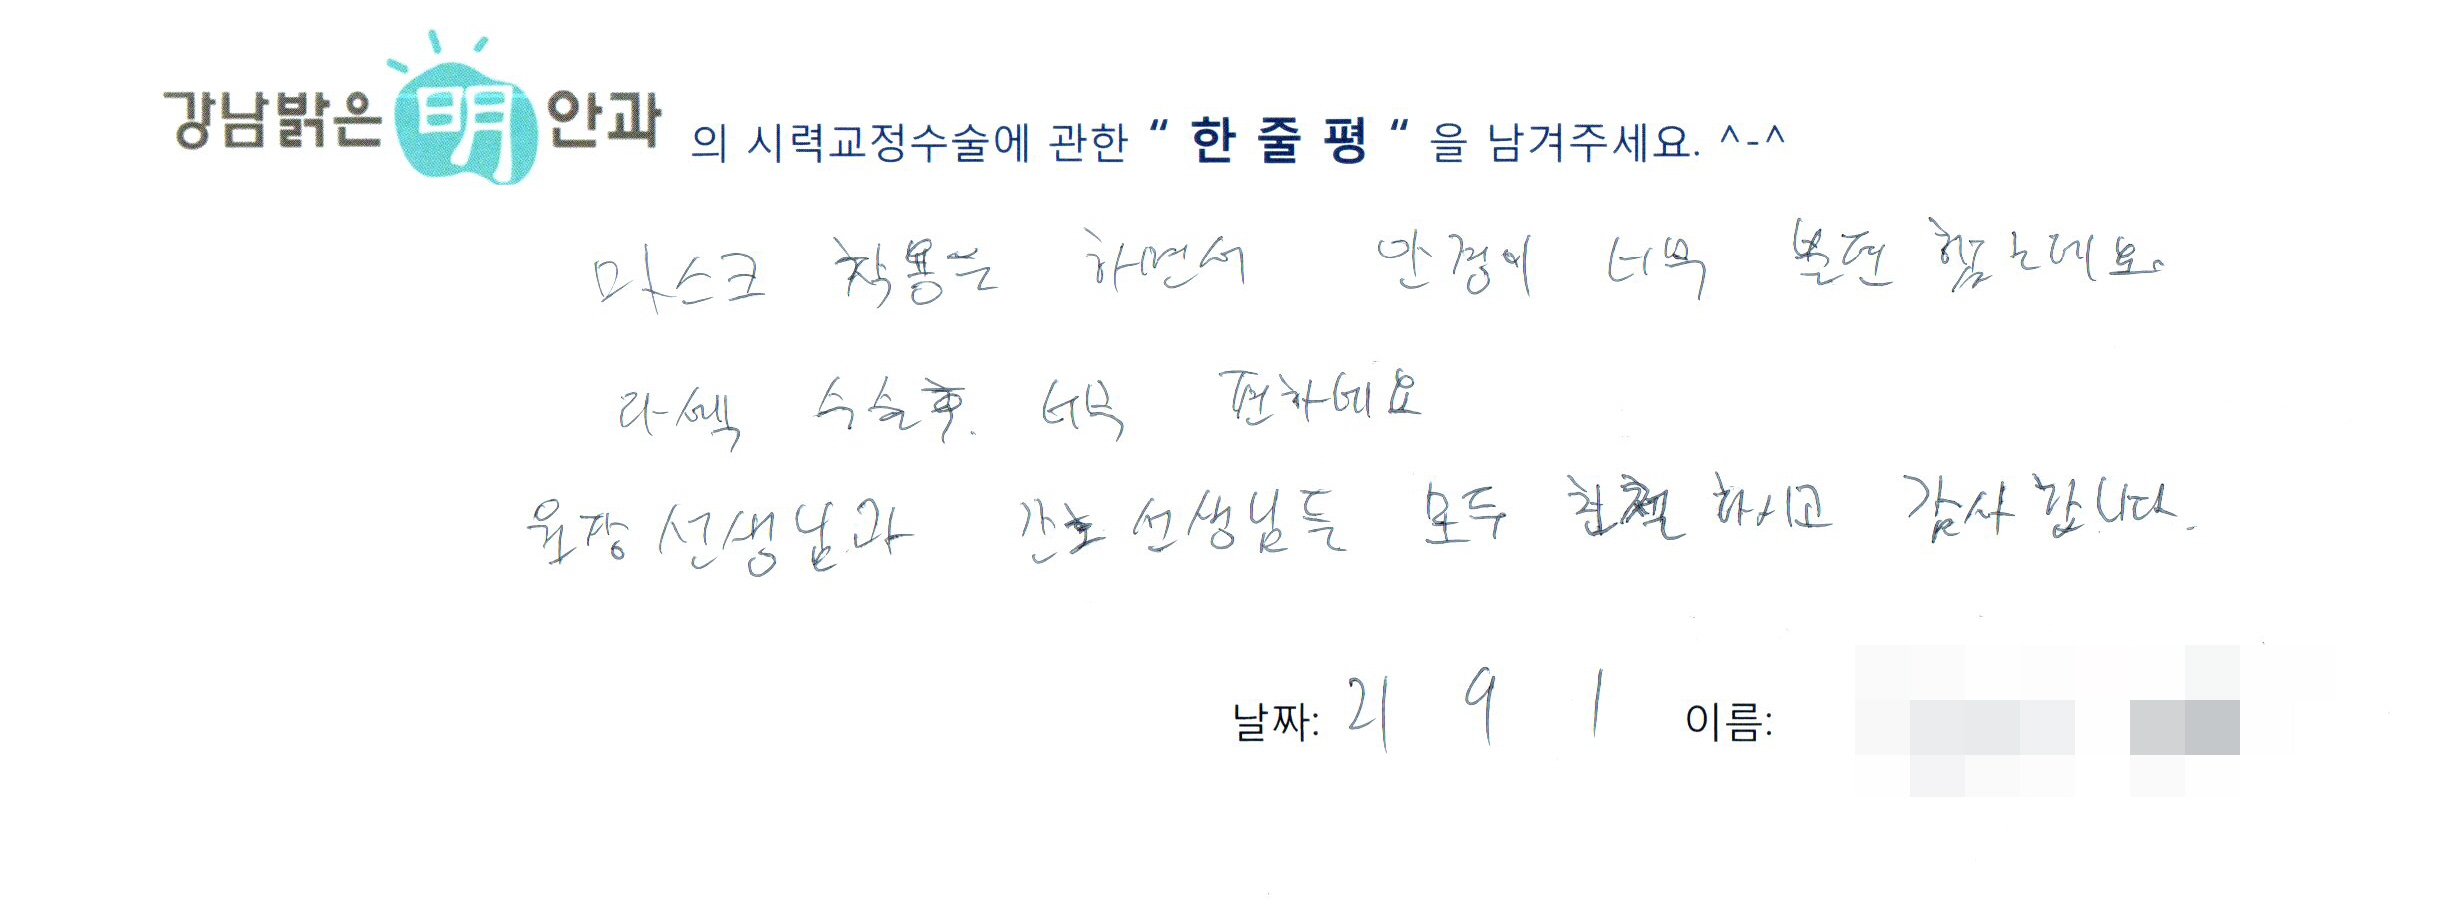 강남밝은 明 안과 의 시력교정수술에 관한 “ 한 줄 평 “ 을 남겨주세요. ^-^
마스크 착용을 하면서 안경이 너무 불편 했는데요.
라섹 수술후. 너무 편하네요
원장선생님과 간호선생님들 모두 친절하시고 감사합니다.
날짜: 21 9 1 이름: